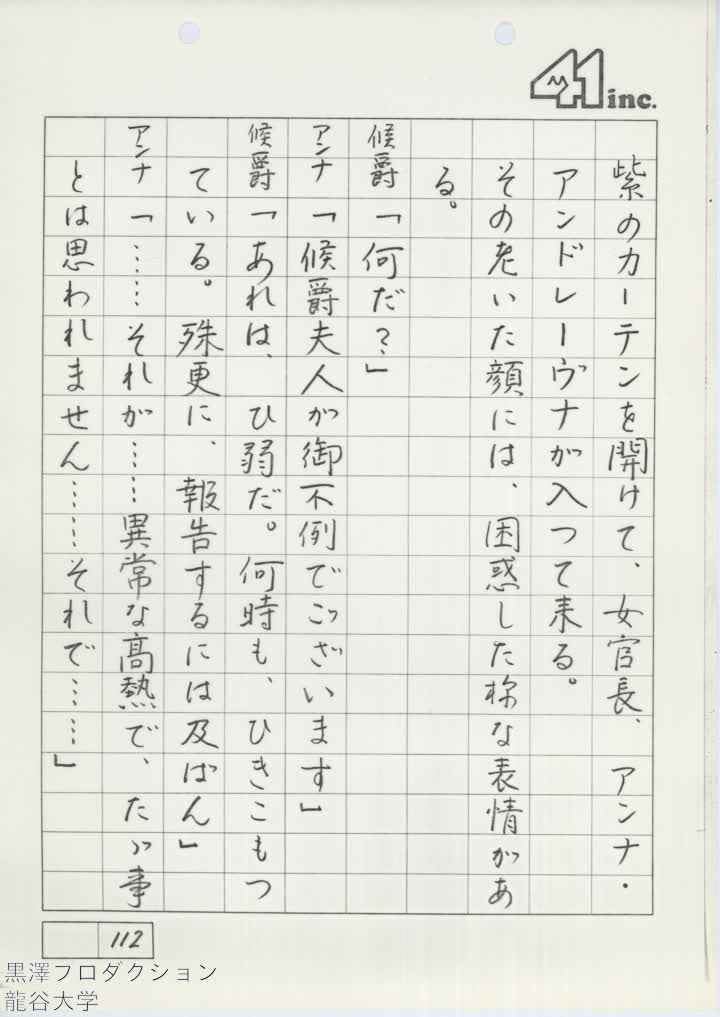 41 inc.
紫のカーテンを開けて、女官長、アンナ・
アンドレーヴナが入って来る。
その老いた顔には、困惑した様な表情があ
る。
候爵「何だ?」
アンナ「候爵夫人が御不例でございます」
候爵「あれは、ひ弱だ。何時も、ひきこもっ
ている。殊更に、報告するには及ばん」
アンナ「……それが……異常な高熱で、たゞ事
とは思われません……それで……」
112
黒澤プロダクション
龍谷大学